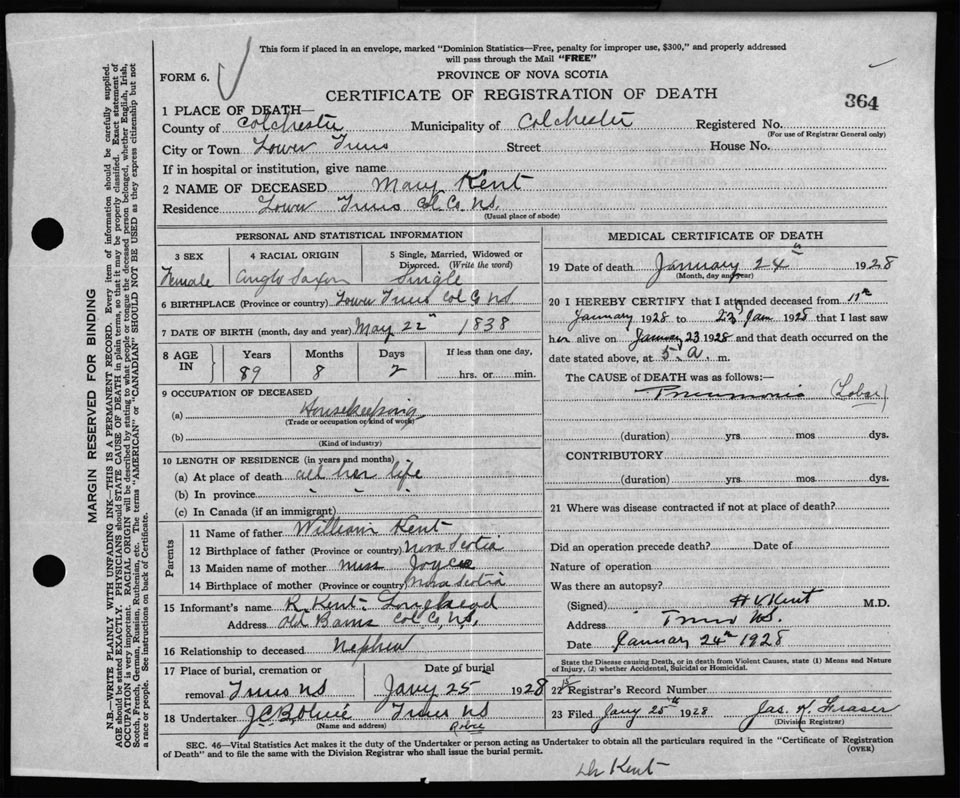 This form if placed in an envelope, marked "Dominion Statistics—Free, penalty for improper use, $300," and properly addressed
will pass through the Mail "FREE"
FORM 6.
PROVINCE OF NOVA SCOTIA
CERTIFICATE OF REGISTRATION OF DEATH
364
1 PLACE OF DEATH—
County of Colchester Municipality of Colchester Registered No.
(For use of Registrar General only)
City or Town Lower Truro Street House No.
If in hospital or institution, give name
2 NAME OF DECEASED Mary Kent
Residence Lower Truro Col. Co. N.S.
(Usual place of abode)
PERSONAL AND STATISTICAL INFORMATION
3 SEX 4 RACIAL ORIGIN 5 Single, Married, Widowed or
Divorced. (Write the word)
Female Anglo Saxon Single
6 BIRTHPLACE (Province or country) Lower Truro Col Co NS
7 DATE OF BIRTH (month, day and year) May 22nd 1838
8 AGE IN Years Months Days If less than one day,
89 8 2 hrs. or min.
9 OCCUPATION OF DECEASED
(a) Housekeeping
(Trade or occupation or kind of work)
(b)
(Kind of industry)
10 LENGTH OF RESIDENCE (in years and months)
(a) At place of death all her life
(b) In province " " "
(c) In Canada (if an immigrant)
Parents
11 Name of father William Kent
12 Birthplace of father (Province or country) Nova Scotia
13 Maiden name of mother Miss Joyce
14 Birthplace of mother (Province or country) Nova Scotia
15 Informant's name R. Kent Longhead
Address Old Barns Col. Co, N.S.
16 Relationship to deceased Nephew
17 Place of burial, cremation or Date of burial
removal Truro NS Jany 25 1928
18 Undertaker Truro NS
(Name and address)
MEDICAL CERTIFICATE OF DEATH
19 Date of death January 24th 1928
(Month, day and year)
20 I HEREBY CERTIFY that I attended deceased from 11th
January 1928 to 23 Jan 1928 that I last saw
her alive on January 23 1928 and that death occurred on the
date stated above, at 5. A. m.
The CAUSE of DEATH was as follows:—
Pneumonia (Lobar)
(duration) yrs. mos dys.
CONTRIBUTORY
(duration) yrs. mos. dys.
21 Where was disease contracted if not at place of death?
Did an operation precede death? Date of
Nature of operation
Was there an autopsy?
(Signed) H V Kent M.D.
Address Truro NS.
Date January 24th 1928
State the Disease causing Death, or in death from Violent Causes, state (1) Means and Nature
of Injury, (2) whether Accidental, Suicidal or Homicidal.
22 Registrar's Record Number 15
23 Filed Jany 25th 1928 Jas. K. Fraser
(Division Registrar)
SEC. 46—Vital Statistics Act makes it the duty of the Undertaker or person acting as Undertaker to obtain all the particulars required in the "Certificate of Registration
of Death" and to file the same with the Division Registrar who shall issue the burial permit.
(OVER)
Dr Kent
MARGIN RESERVED FOR BINDING
N.B.—WRITE PLAINLY WITH UNFADING INK—THIS IS A PERMANENT RECORD. Every item of information should be carefully supplied.
AGE should be stated EXACTLY. PHYSICIANS should STATE CAUSE OF DEATH in plain terms, so that it may be properly classified. Exact statement of
OCCUPATION is very important. RACIAL ORIGIN will be described by stating to what people or tongue the deceased person belonged, whether English, Irish,
Scotch, French, German, Russian, Ruthenian, etc. The terms "AMERICAN" or "CANADIAN" SHOULD NOT BE USED as they express citizenship but not
a race or people. See instructions on back of Certificate.